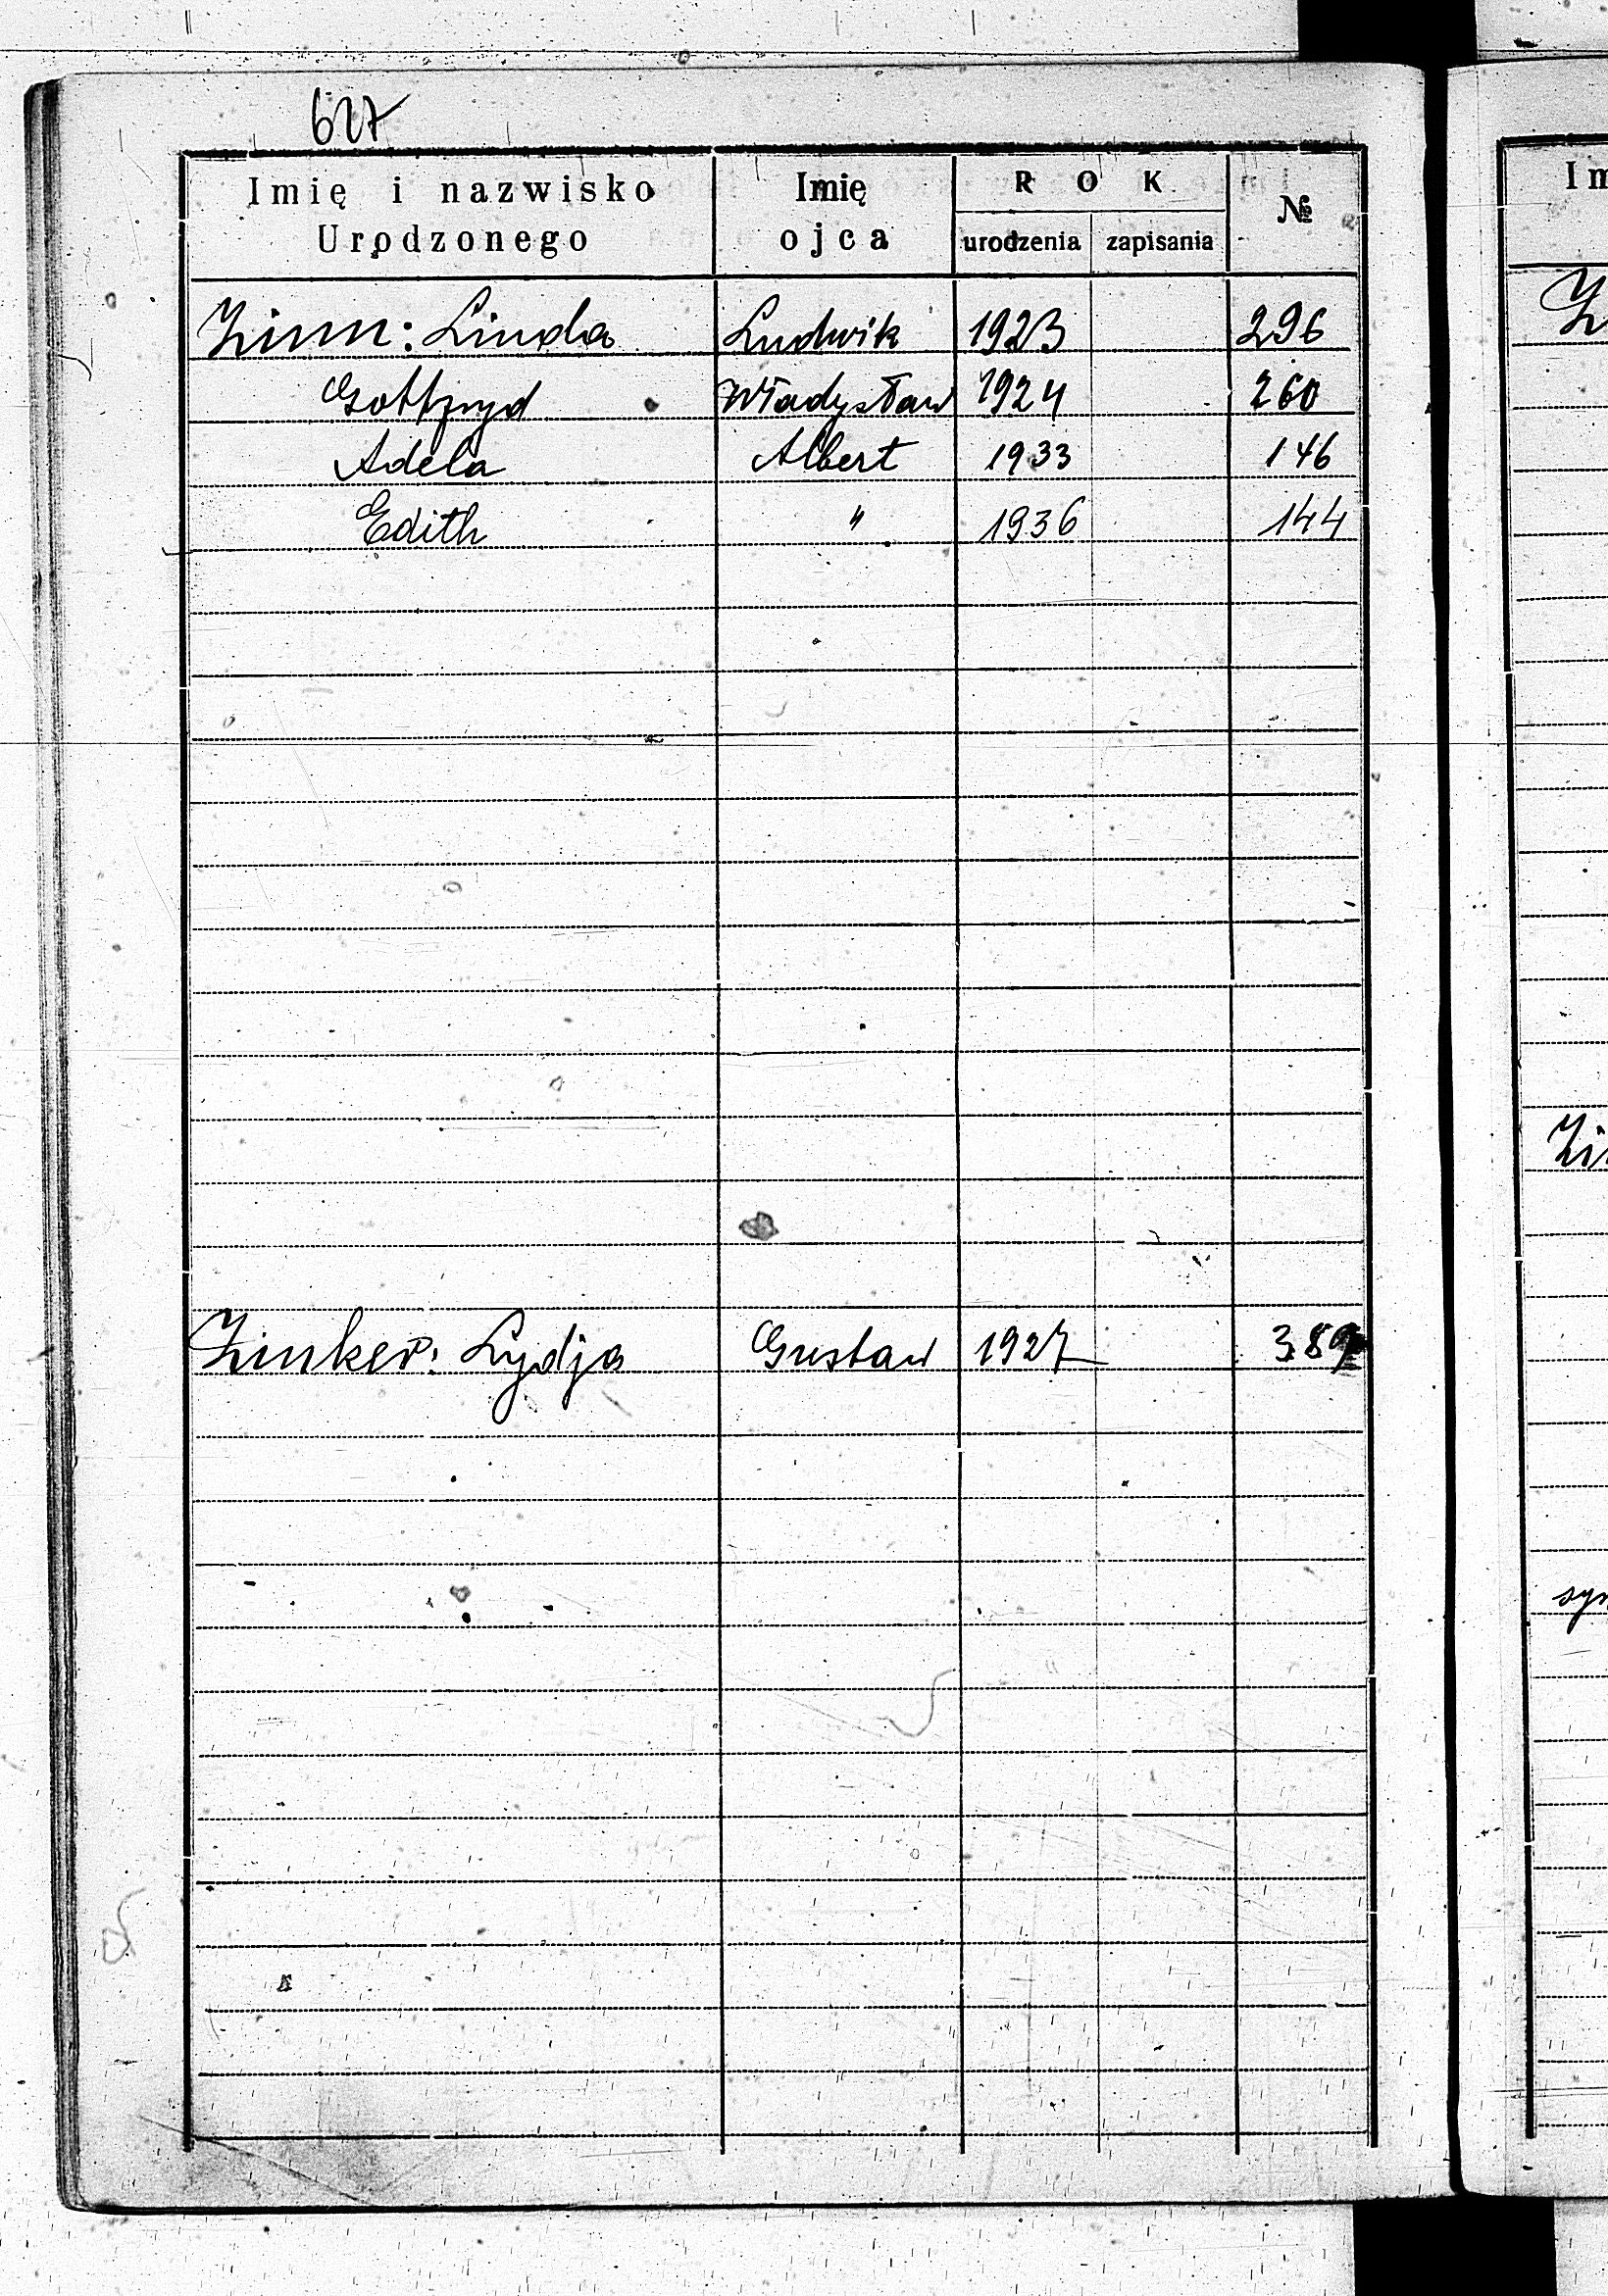 627
Imię i nazwisko Urodzonego Imię ojca ROK urodzenia zapisania №
Zinn: Linda Ludwik 1923 296
Gottfryd Władysław 1924 260
Adela Albert 1933 146
Edith " 1936 144
Zinker: Lydja Gustaw 1927 389
Im
Z
Zi
syn